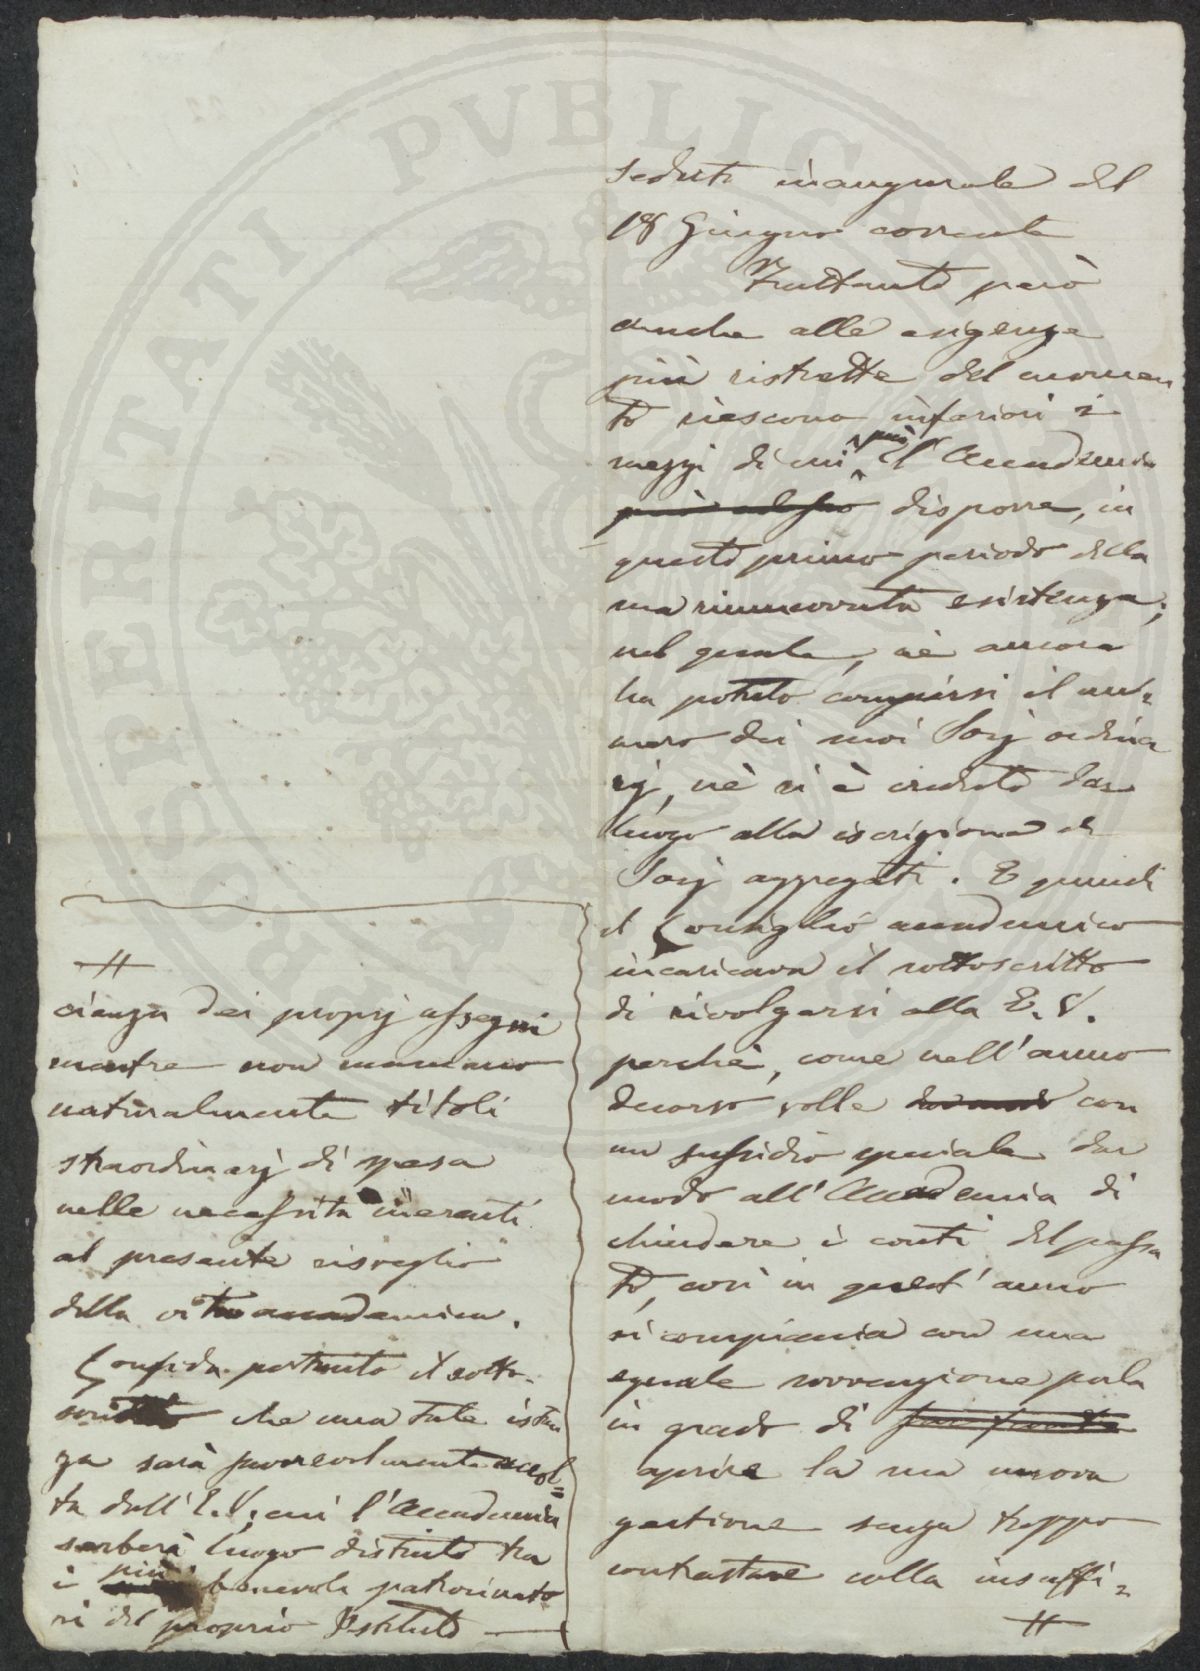 seduta inaugurale del
18 Giugno corrente
Frattanto però
anche alle esigenze
più ristrette del momen
to riescono inferiori i
mezzi di cui può l'Accademia
disporre, in
questo primo periodo della
sua rinnovata esistenza;
nel quale, nè ancora
ha potuto compiersi il nu=
mero dei suoi Socj ordina
rj, nè si è creduto dar
luogo alla iscrizione di
Socj aggregati. E quindi
il Consiglio accademico
incaricava il sottoscritto
di rivolgersi alla E. V.
perchè, come nell'anno
decorso volle con
un sussidio speciale dar
modo all'Accademia di
chiudere i conti del passa
to, così in quest'anno
si compiaccia con una
eguale sovvenzione porla
in grado di
aprire la sua nuova
gestione senza troppo
contrastare colla insuffi=
#
#
cienza dei proprj assegni
mentre non mancano
naturalmente titoli
straordinarj di spesa
nelle necessità inerenti
al presente risveglio
della vita accademica.
Confida pertanto il sotto-
scritto che una tale istan
za sarà favorevolmente accol=
ta dall'E. V. cui l'Accademia
serberà luogo distinto tra
i più benevoli patrocinato
ri del proprio Istituto
PROSPERITATI PVBLICAE